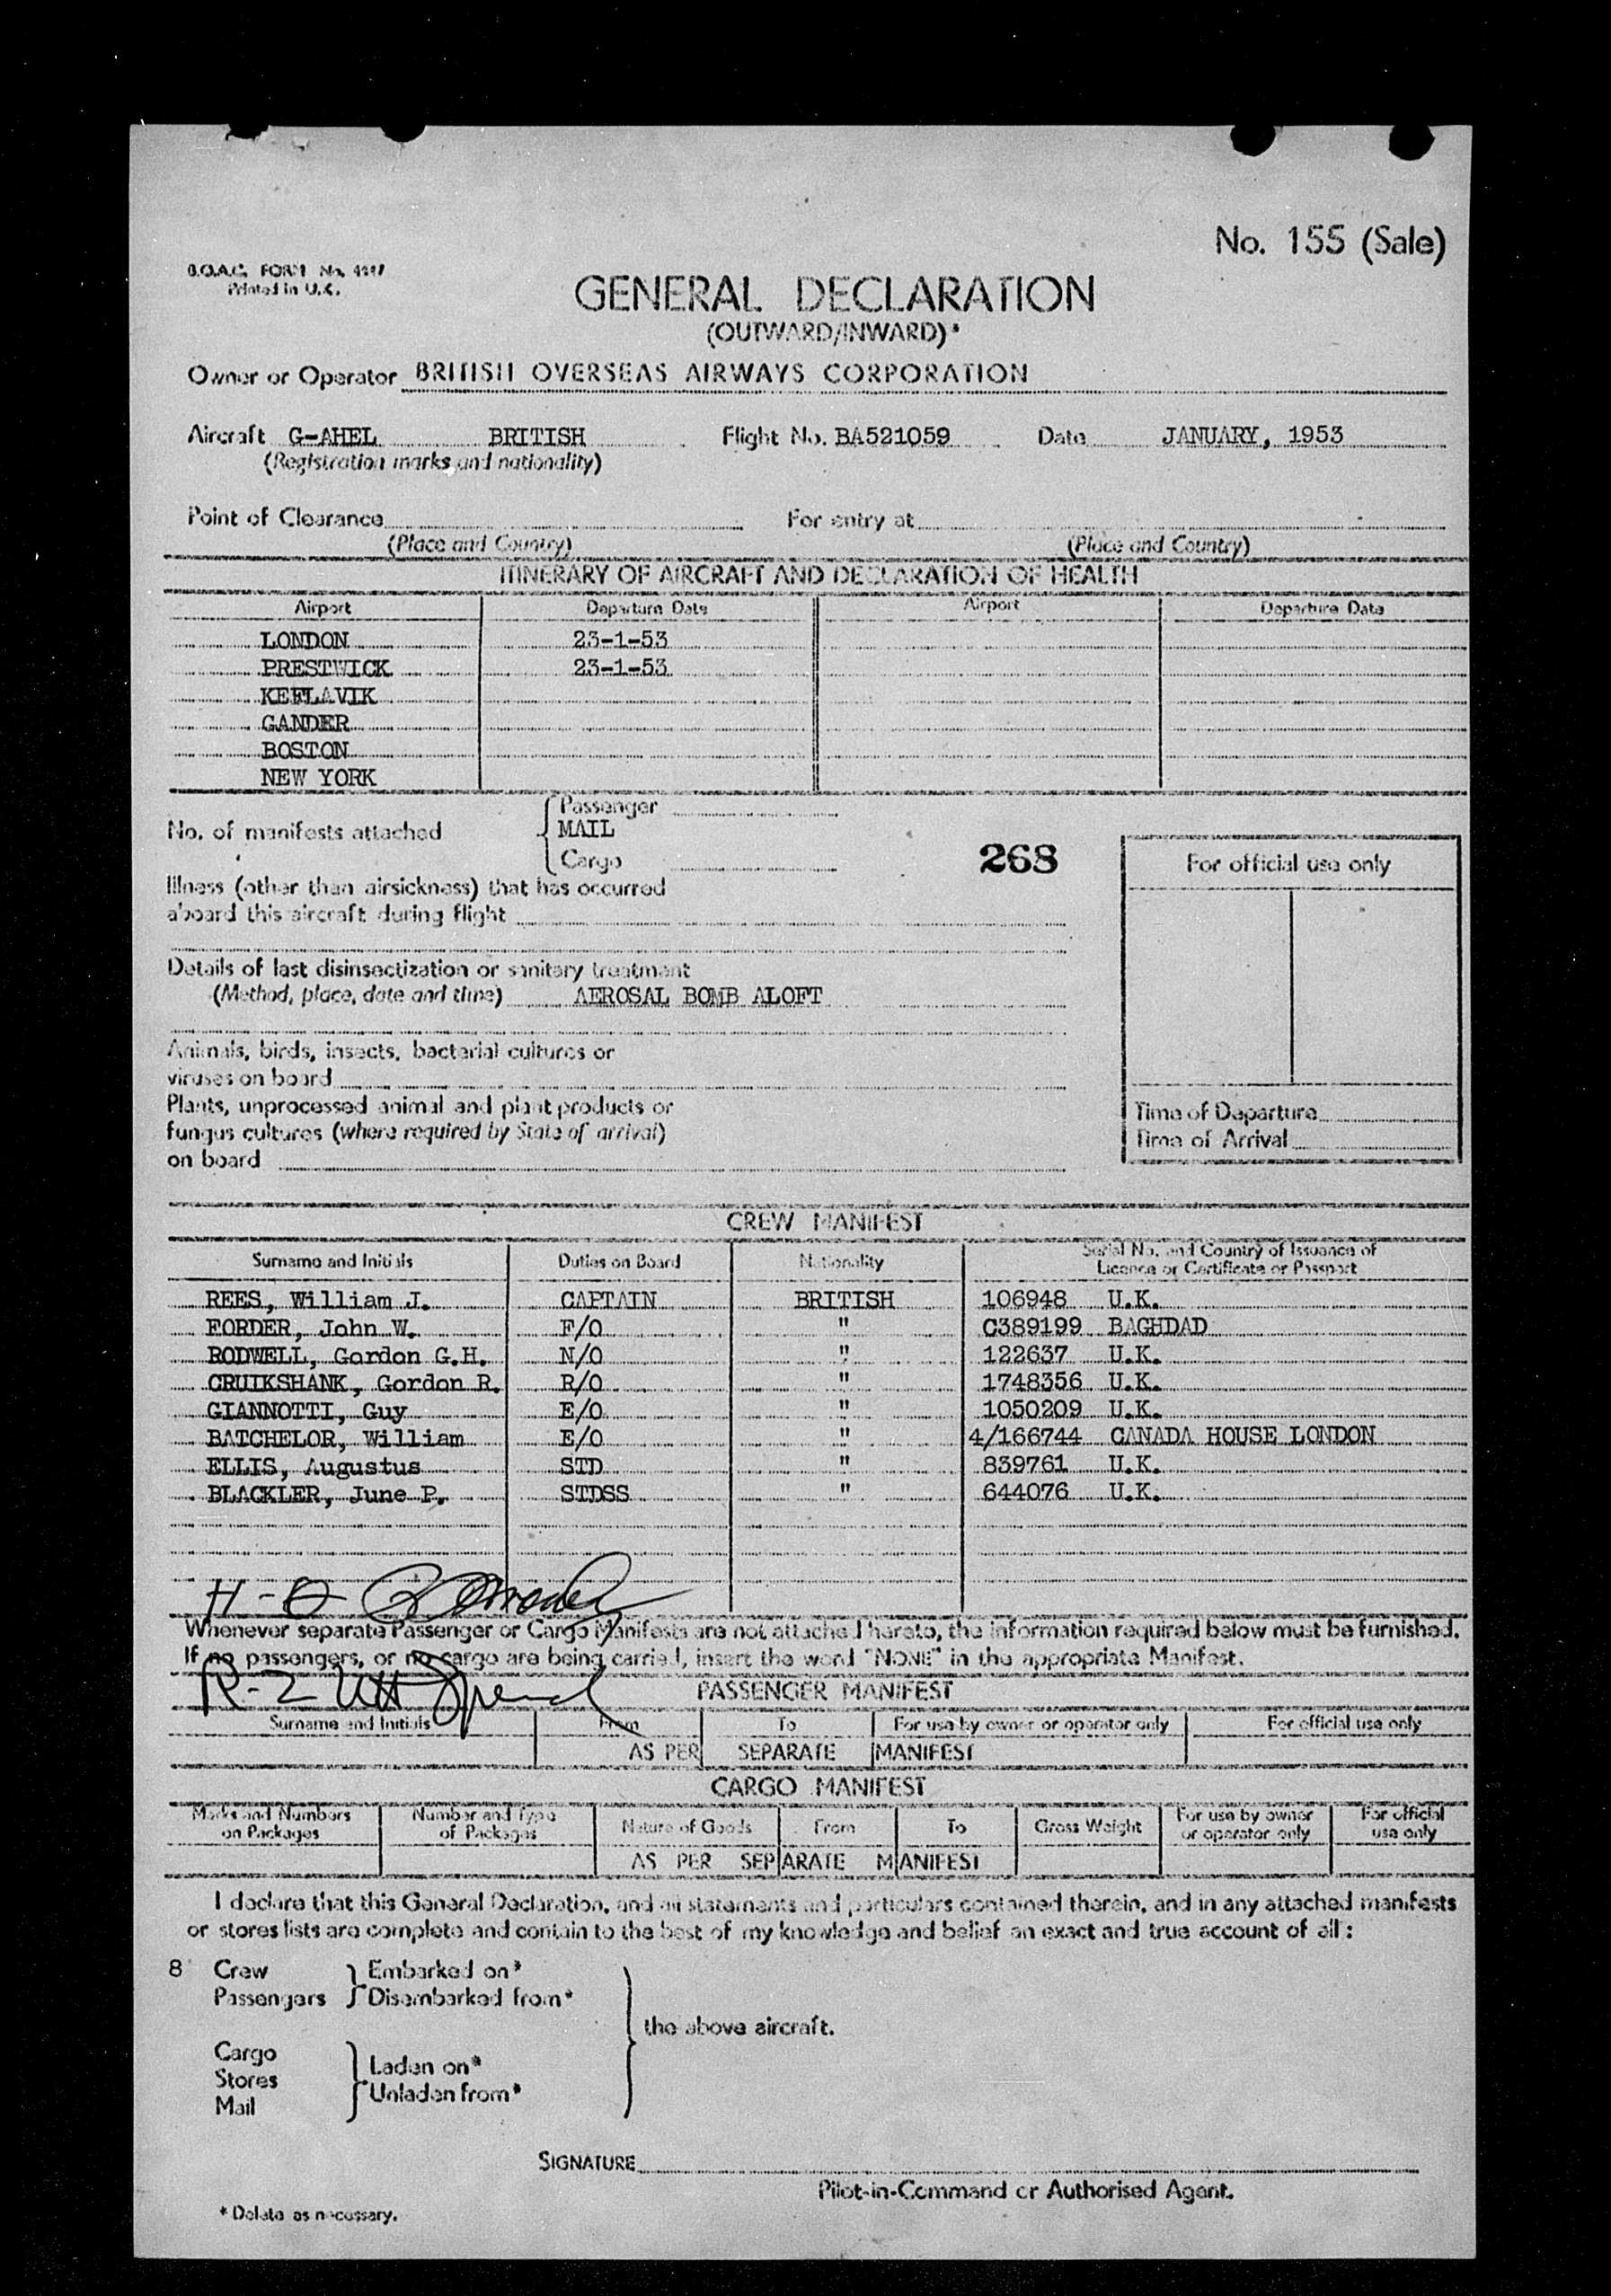 No. 155 (Sale)
B.O.A.C. FORM No.
Printed in U.K.
GENERAL DECLARATION
(OUTWARD/INWARD)*
Owner or Operator BRITISH OVERSEAS AIRWAYS CORPORATION
Aircraft G-AHEL BRITISH Flight No. BA521059 Date JANUARY, 1953
(Registration marks and nationality)
Point of Clearance For entry at
(Place and Country) (Place and Country)
ITINERARY OF AIRCRAFT AND DECLARATION OF HEALTH
Airport Departure Date Airport Departure Date
LONDON 23-1-53
PRESTWICK 23-1-53
KEFLAVIK
GANDER
BOSTON
NEW YORK
No. of manifests attached
Passenger
MAIL
Cargo
268
For official use only
Illness (other than airsickness) that has occurred
aboard this aircraft during flight
Details of last disinsectization or sanitary treatment
(Method, place, date and time) AEROSAL BOMB ALOFT
Animals, birds, insects, bacterial cultures or
viruses on board
Plants, unprocessed animal and plant products or
fungus cultures (where required by State of arrival)
on board
Time of Departure
Time of Arrival
CREW MANIFEST
Surname and Initials Duties on Board Nationality Serial No. and Country of Issuance of
Licence or Certificate or Passport
REES, William J. CAPTAIN BRITISH 106948 U.K.
FORDER, John W. F/O " C389199 BAGHDAD
RODWELL, Gordon G.H. N/O " 122637 U.K.
CRUIKSHANK, Gordon R. R/O " 1748356 U.K.
GIANNOTTI, Guy E/O " 1050209 U.K.
BATCHELOR, William E/O " 4/166744 CANADA HOUSE LONDON
ELLIS, Augustus STD " 839761 U.K.
BLACKLER, June P. STDSS " 644076 U.K.
Whenever separate Passenger or Cargo Manifests are not attached hereto, the information required below must be furnished.
If no passengers, or no cargo are being carried, insert the word "NONE" in the appropriate Manifest.
PASSENGER MANIFEST
Surname and Initials From To For use by owner or operator only For official use only
AS PER SEPARATE MANIFEST
CARGO MANIFEST
Marks and Numbers on Packages Number and Type of Packages Nature of Goods From To Gross Weight For use by owner or operator only For official use only
AS PER SEPARATE MANIFEST
I declare that this General Declaration, and all statements and particulars contained therein, and in any attached manifests
or stores lists are complete and contain to the best of my knowledge and belief an exact and true account of all:
8 Crew Embarked on*
Passengers Disembarked from*
the above aircraft.
Cargo
Stores
Mail
Laden on*
Unladen from*
SIGNATURE
Pilot-in-Command or Authorised Agent.
* Delete as necessary.